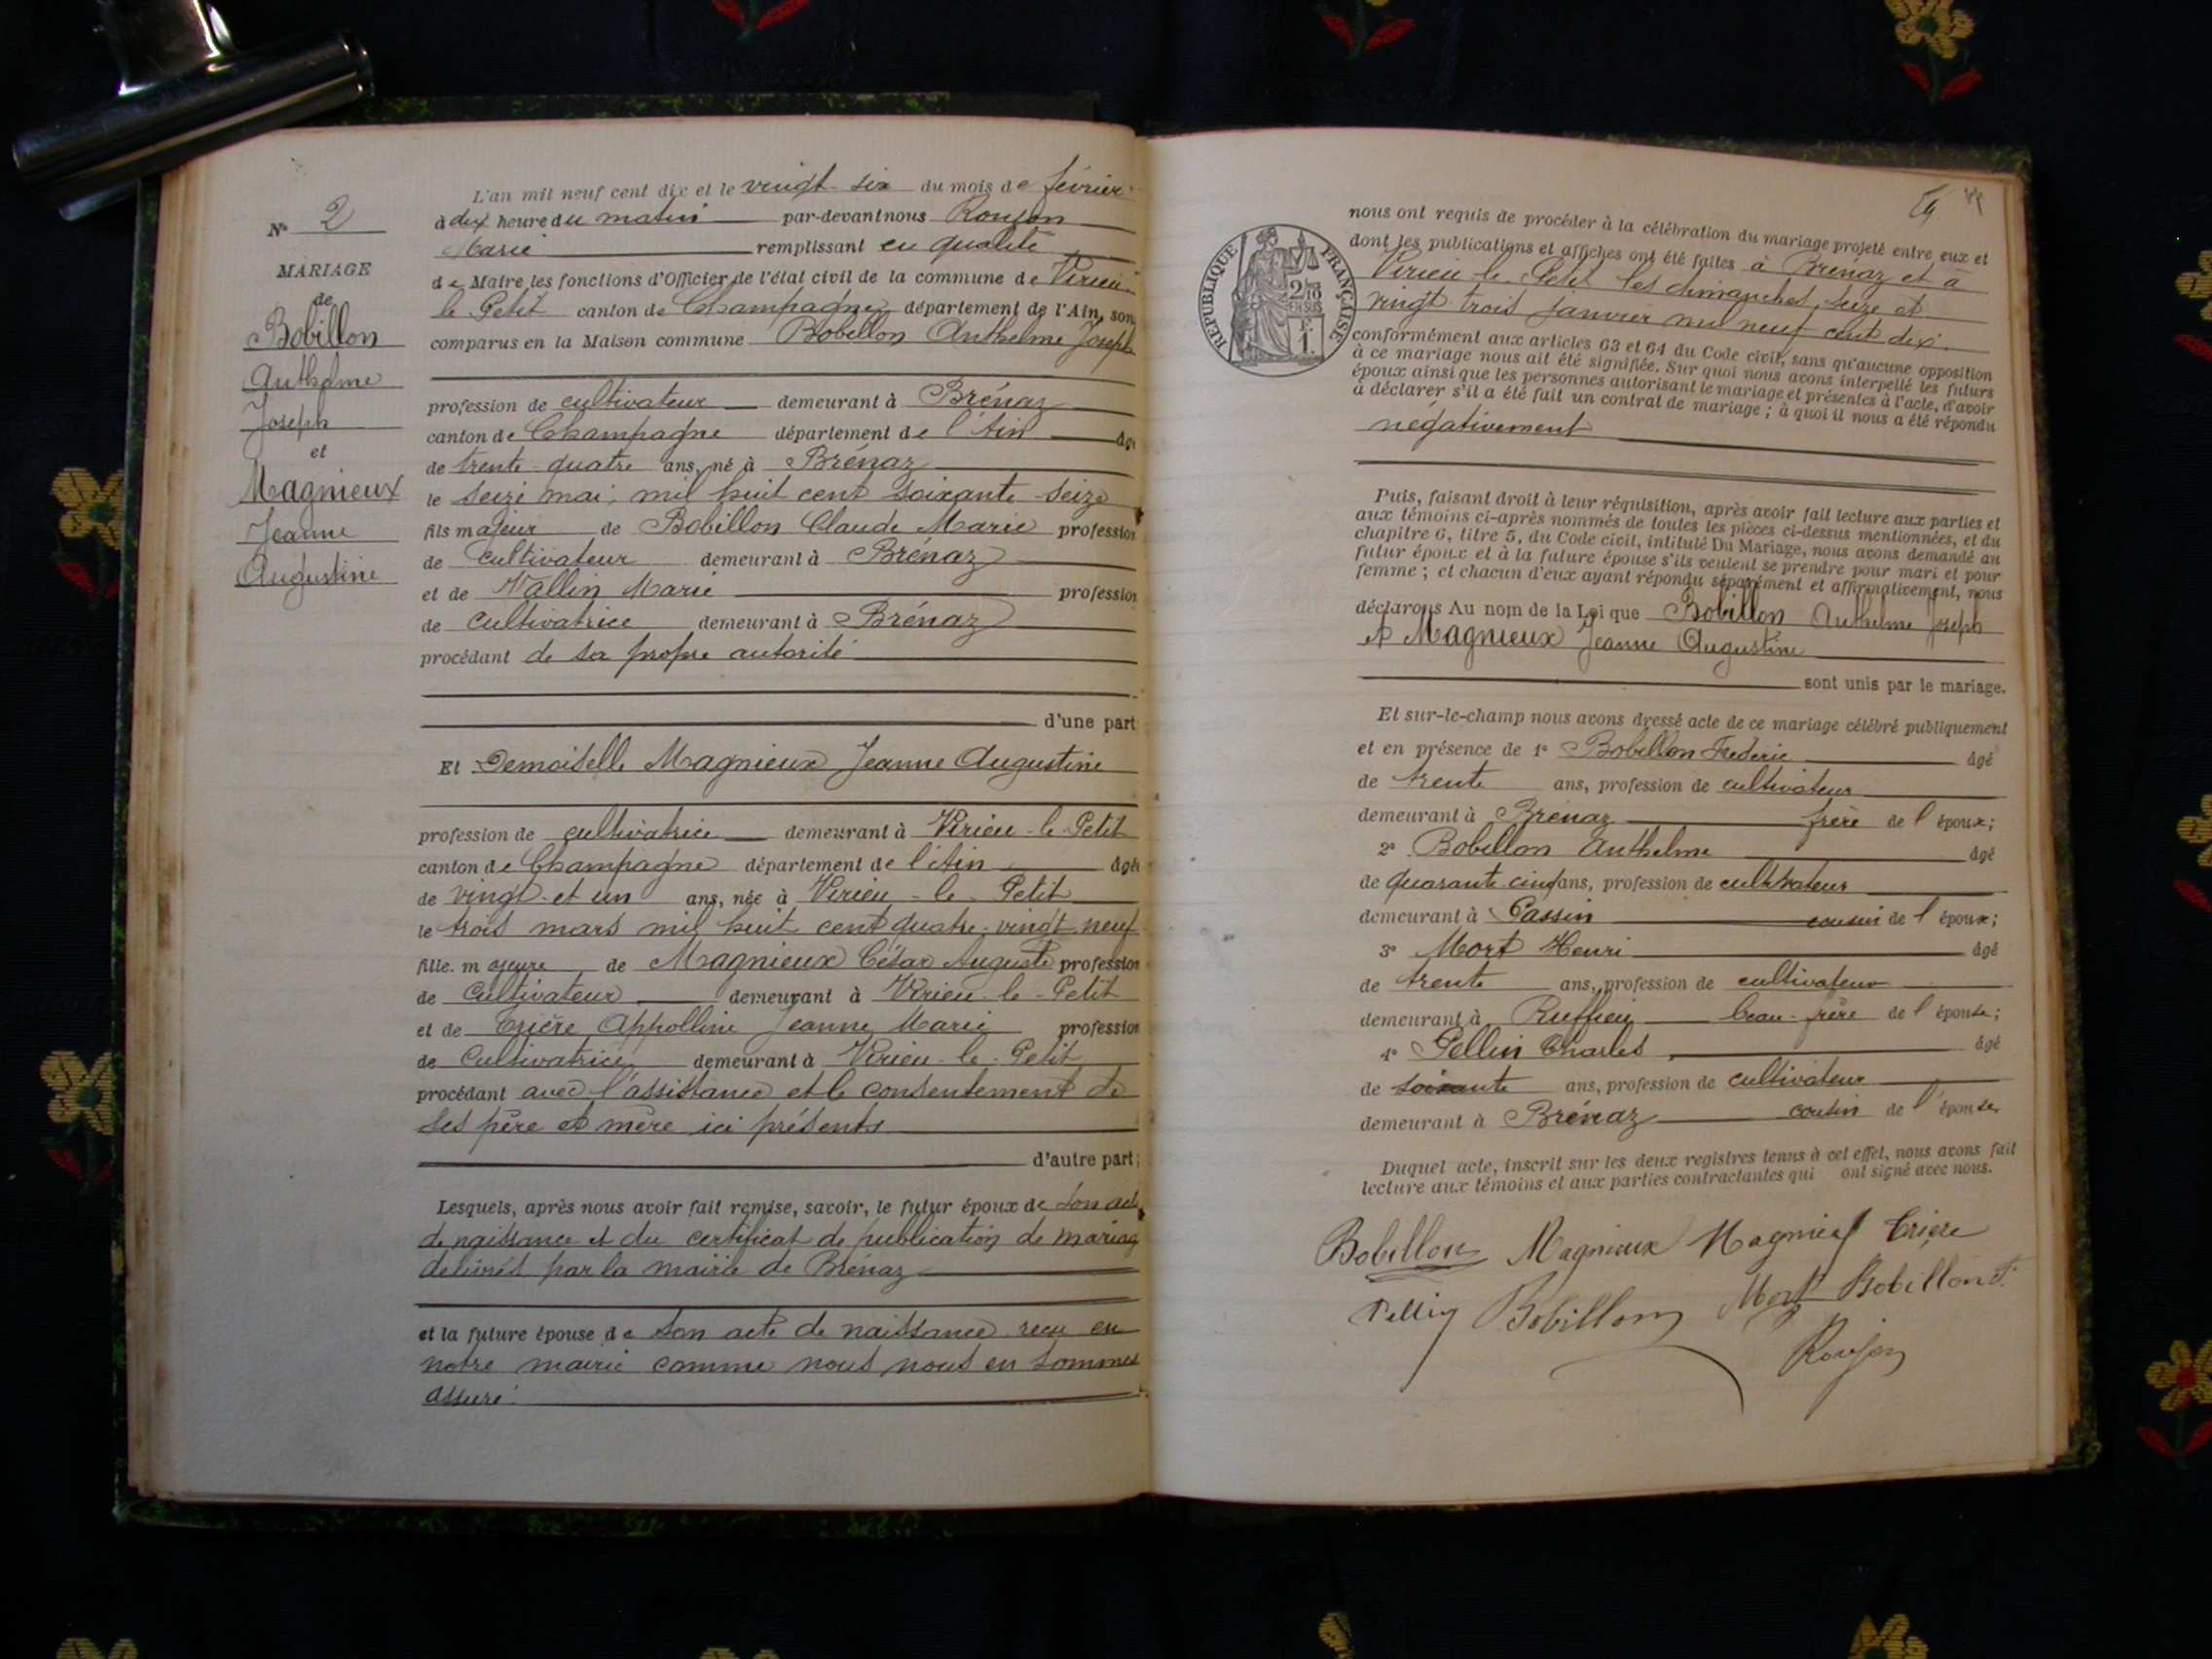 N° 2
MARIAGE
de
Bobillon
Anthelme
Joseph
et
Magnieux
Jeanne
Augustine
L'an mil neuf cent dix et le vingt-six du mois de février
à dix heure du matin par-devant nous Roujon
Marie remplissant en qualité
de Maire les fonctions d'Officier de l'état civil de la commune de Virieu-
le Petit canton de Champagne département de l'Ain, son
comparus en la Maison commune Bobillon Anthelme Joseph
profession de cultivateur demeurant à Brénaz
canton de Champagne département de l'Ain âgé
de trente-quatre ans, né à Brénaz
le seize mai, mil huit cent soixante-seize
fils majeur de Bobillon Claude Marie profession
de cultivateur demeurant à Brénaz
et de Vallin Marie profession
de cultivatrice demeurant à Brénaz
procédant de sa propre autorité
d'une part
Et Demoiselle Magnieux Jeanne Augustine
profession de cultivatrice demeurant à Virieu-le-Petit
canton de Champagne département de l'Ain âgé
de vingt-et un ans, née à Virieu-le-Petit
le trois mars mil huit cent quatre-vingt neuf
fille majeure de Magnieux César Auguste profession
de cultivateur demeurant à Virieu-le-Petit
et de Trière Appolline Jeanne Marie profession
de cultivatrice demeurant à Virieu-le-Petit
procédant avec l'assistance et le consentement de
ses père et mère ici présents
d'autre part;
Lesquels, après nous avoir fait remise, savoir, le futur époux de son acte
de naissance et du certificat de publication de mariag
délivrés par la mairie de Brénaz
et la future épouse de son acte de naissance reçu en
notre mairie comme nous nous en sommes
assuré.
RÉPUBLIQUE FRANÇAISE
2/10 EN SUS
1 F.
nous ont requis de procéder à la célébration du mariage projeté entre eux et
dont les publications et affiches ont été faites à Brénaz et à
Virieu-le-Petit les dimanches, seize et
vingt trois janvier mil neuf cent dix.
conformément aux articles 63 et 64 du Code civil, sans qu'aucune opposition
à ce mariage nous ait été signifiée. Sur quoi nous avons interpellé les futurs
époux ainsi que les personnes autorisant le mariage et présentes à l'acte, d'avoir
à déclarer s'il a été fait un contrat de mariage; à quoi il nous a été répondu
négativement
Puis, faisant droit à leur réquisition, après avoir fait lecture aux parties et
aux témoins ci-après nommés de toutes les pièces ci-dessus mentionnées, et du
chapitre 6, titre 5, du Code civil, intitulé Du Mariage, nous avons demandé au
futur époux et à la future épouse s'ils veulent se prendre pour mari et pour
femme; et chacun d'eux ayant répondu séparément et affirmativement, nous
déclarons Au nom de la Loi que Bobillon Anthelme Joseph
et Magnieux Jeanne Augustine
sont unis par le mariage.
Et sur-le-champ nous avons dressé acte de ce mariage célébré publiquement
et en présence de 1° Bobillon Frédéric âgé
de trente ans, profession de cultivateur
demeurant à Brénaz frère de l'époux;
2° Bobillon Anthelme âgé
de quarante cinq ans, profession de cultivateur
demeurant à Passin cousin de l'époux;
3° Mort Henri âgé
de trente ans, profession de cultivateur
demeurant à Ruffieu beau-frère de l'épouse;
4° Pellin Charles âgé
de soixante ans, profession de cultivateur
demeurant à Brénaz cousin de l'épouse
Duquel acte, inscrit sur les deux registres tenus à cet effet, nous avons fait
lecture aux témoins et aux parties contractantes qui ont signé avec nous.
Bobillon Magnieux Magnieux Trière
Pellin Bobillon Mort Bobillon F.
Roujon